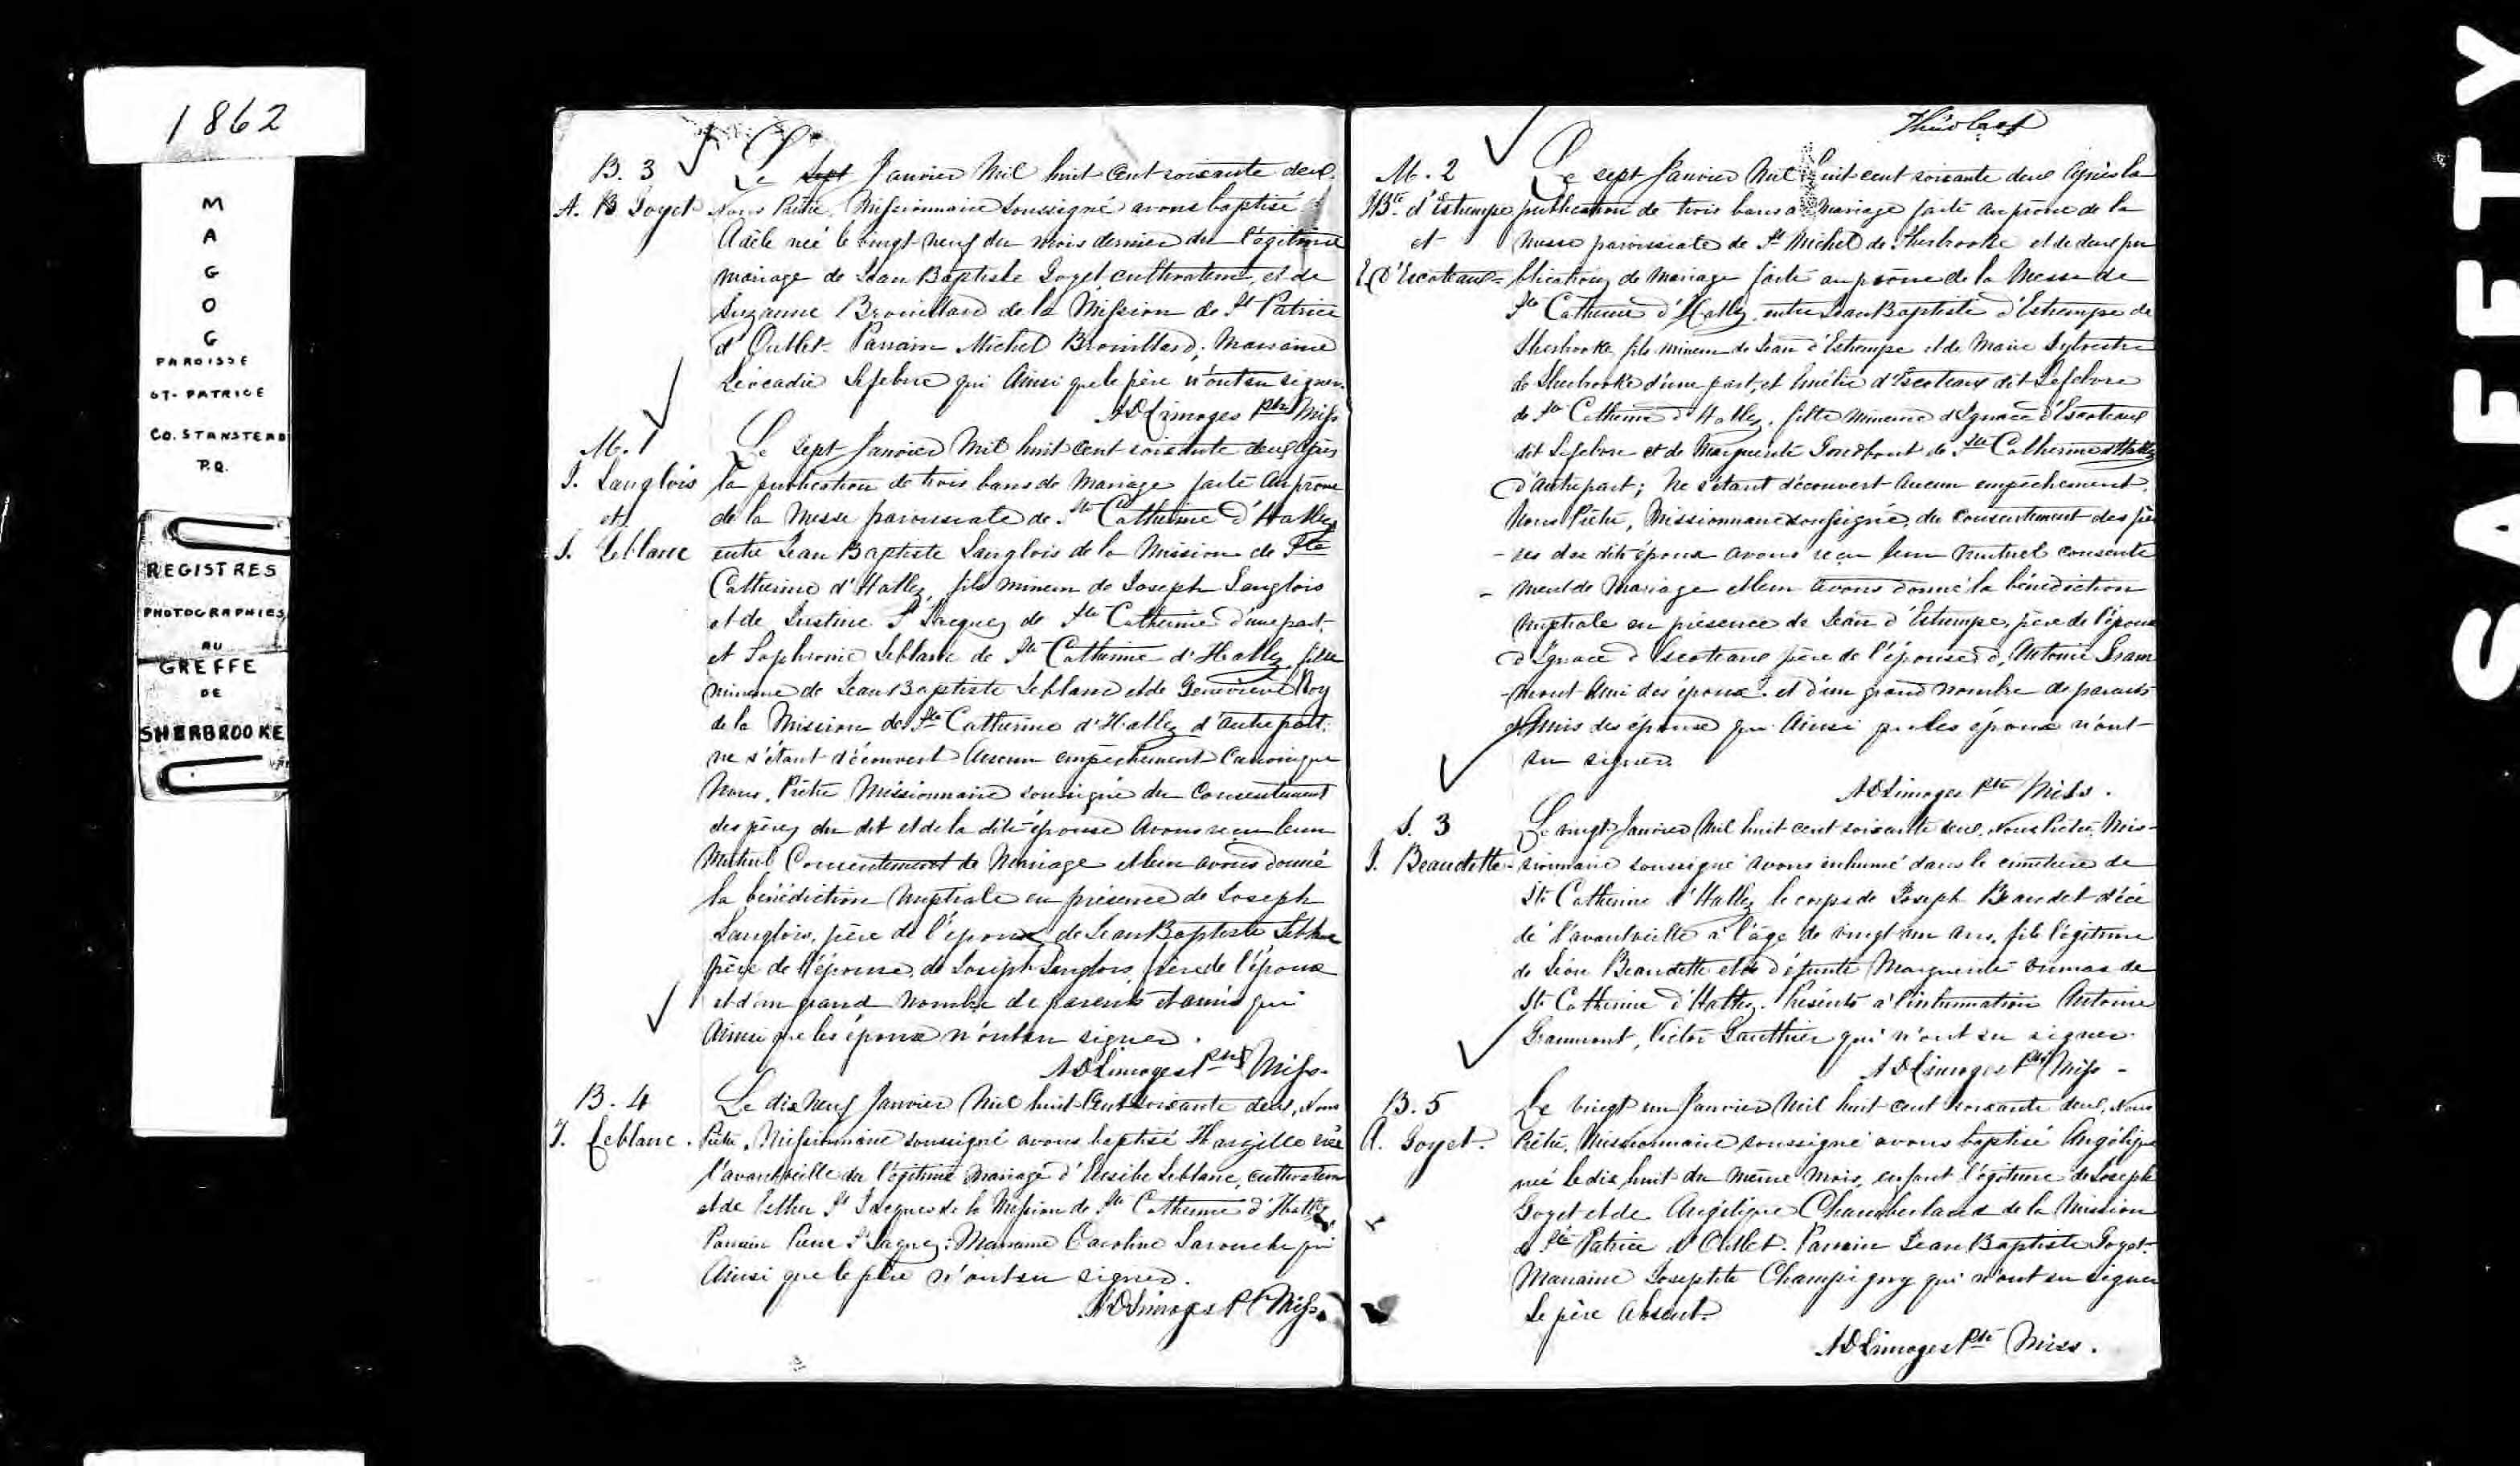 1862
M
A
G
O
G
PAROISSE
ST-PATRICE
CO. STANSTEAD
P.Q.
REGISTRES
PHOTOGRAPHIES
AU
GREFFE
DE
SHERBROOKE
B. 3
A. B Goyet
Le Sept Janvier Mil huit Cent soixante deux.
Nous Prêtre, Missionnaire soussigné avons baptisé
Adèle neé le vingt-neuf du mois dernier du légitime
mariage de Jean Baptiste Goyet cultivateur, et de
Suzanne Brouillard de la Mission de St Patrice
d'Outlet. Parrain Michel Brouillard; Marraine
Léocadie Lefebvre qui Ainsi que le père n'ont su signer.
AD Limoges Ptre Miss
M. 1
J. Langlois
et
S. Leblanc
Le sept Janvier Mil huit Cent soixante deux après
la publication de trois bans de Mariage faite au prône
de la Messe paroissiale de Ste Catherine d'Hatley
entre Jean Baptiste Langlois de la Mission de Ste
Catherine d'Hatley, fils mineur de Joseph Langlois
et de Justine St Jacques de Ste Catherine d'une part
et Sophronie Leblanc de Ste Catherine d'Hatley fille
mineure de Jean Baptiste Leblanc et de Geneviève Roy
de la Mission de Ste Catherine d'Hatley d'autre part:
ne s'étant découvert Aucun empêchement Canonique
Nous, Prêtre Missionnaire soussigné du Consentement
des pères du dit et de la dite épouse Avons reçu leur
Mutuel Consentement de Mariage et leur avons donné
la bénédiction Nuptiale en présence de Joseph
Langlois, père de l'époux, de Jean Baptiste Leblanc
père de l'épouse, de Joseph Langlois frère de l'époux
et d'un grand Nombre de parents et amis qui
Ainsi que les époux n'ont su signer.
AD Limoges Ptre Miss.
B. 4
Leblanc.
Le dix Neuf Janvier Mil huit Cent soixante deux, Nous
Prêtre, Missionnaire soussigné avons baptisé
l'avant veille du légitime Mariage d' Leblanc, cultivateur
et de Esther St Jacques de la Mission de Ste Catherine d'Hatley
Parrain Pierre St Jacques: Marraine Caroline Larouche qui
Ainsi que le père n'ont su signer.
AD Limoges Pt Miss.
M. 2
JBte d'Estrempe
et
E. d'Escoteaux
Le sept Janvier Mil huit cent soixante deux Après la
publication de trois bans de Mariage faite au prône de la
Messe paroissiale de St Michel de Sherbrooke et de deux pu
blications de Mariage faite au prône de la Messe de
Ste Catherine d'Hatley, entre Jean Baptiste d'Estrempe de
Sherbrooke fils mineur de Jean d'Estrempe et de Marie Sylvestre
de Sherbrooke d'une part, et Emélie d'Escoteaux dit Lefebvre
de Ste Catherine d'Hatley, fille Mineure d'Ignace d'Escoteaux
dit Lefebvre et de Marguerite de Ste Catherine d'Hatley
d'autre part; Ne s'étant découvert Aucun empêchement.
Nous Prêtre, Missionnaire soussigné, du Consentement des pè
-res des dits époux avons reçu leur Mutuel consente
- ment de Mariage et leur avons donné la bénédiction
Nuptiale en présence de Jean d'Estrempe, père de l'époux
d'Ignace d'Escoteaux père de l'épouse, d'Antoine Gram
-mont Ami des époux, et d'un grand nombre de parents
et Amis des épouse qui Ainsi que les époux n'ont
su signer.
AD Limoges Ptre Miss.
S. 3
J. Beaudette
Le vingt Janvier Mil huit cent soixante deux, Nous Prêtre, Mis-
sionnaire soussigné avons inhumé dans le cimetière de
Ste Catherine d'Hatley le corps de Joseph Beaudet décé
dé l'avant veille à l'âge de vingt un Ans, fils légitime
de Léon Beaudette et de défunte Marguerite Dumas de
Ste Catherine d'Hatley. Présents à l'inhumation Antoine
Grammont, Victor Gauthier qui n'ont su signer.
AD Limoges Ptre Miss -
B. 5
A. Goyet.
Le vingt un Janvier Mil huit cent soixante deux, Nous
Prêtre, Missionnaire soussigné avons baptisé Angélique
neé le dix huit du même Mois, enfant légitime de Joseph
Goyet et de Angélique Chamberland de la Mission
de St Patrice d'Outlet. Parrain Jean Baptiste Goyet.
Marraine Josephte Champigny qui n'ont su signer
Le père Absent.
AD Limoges Ptre Miss.
SAFETY